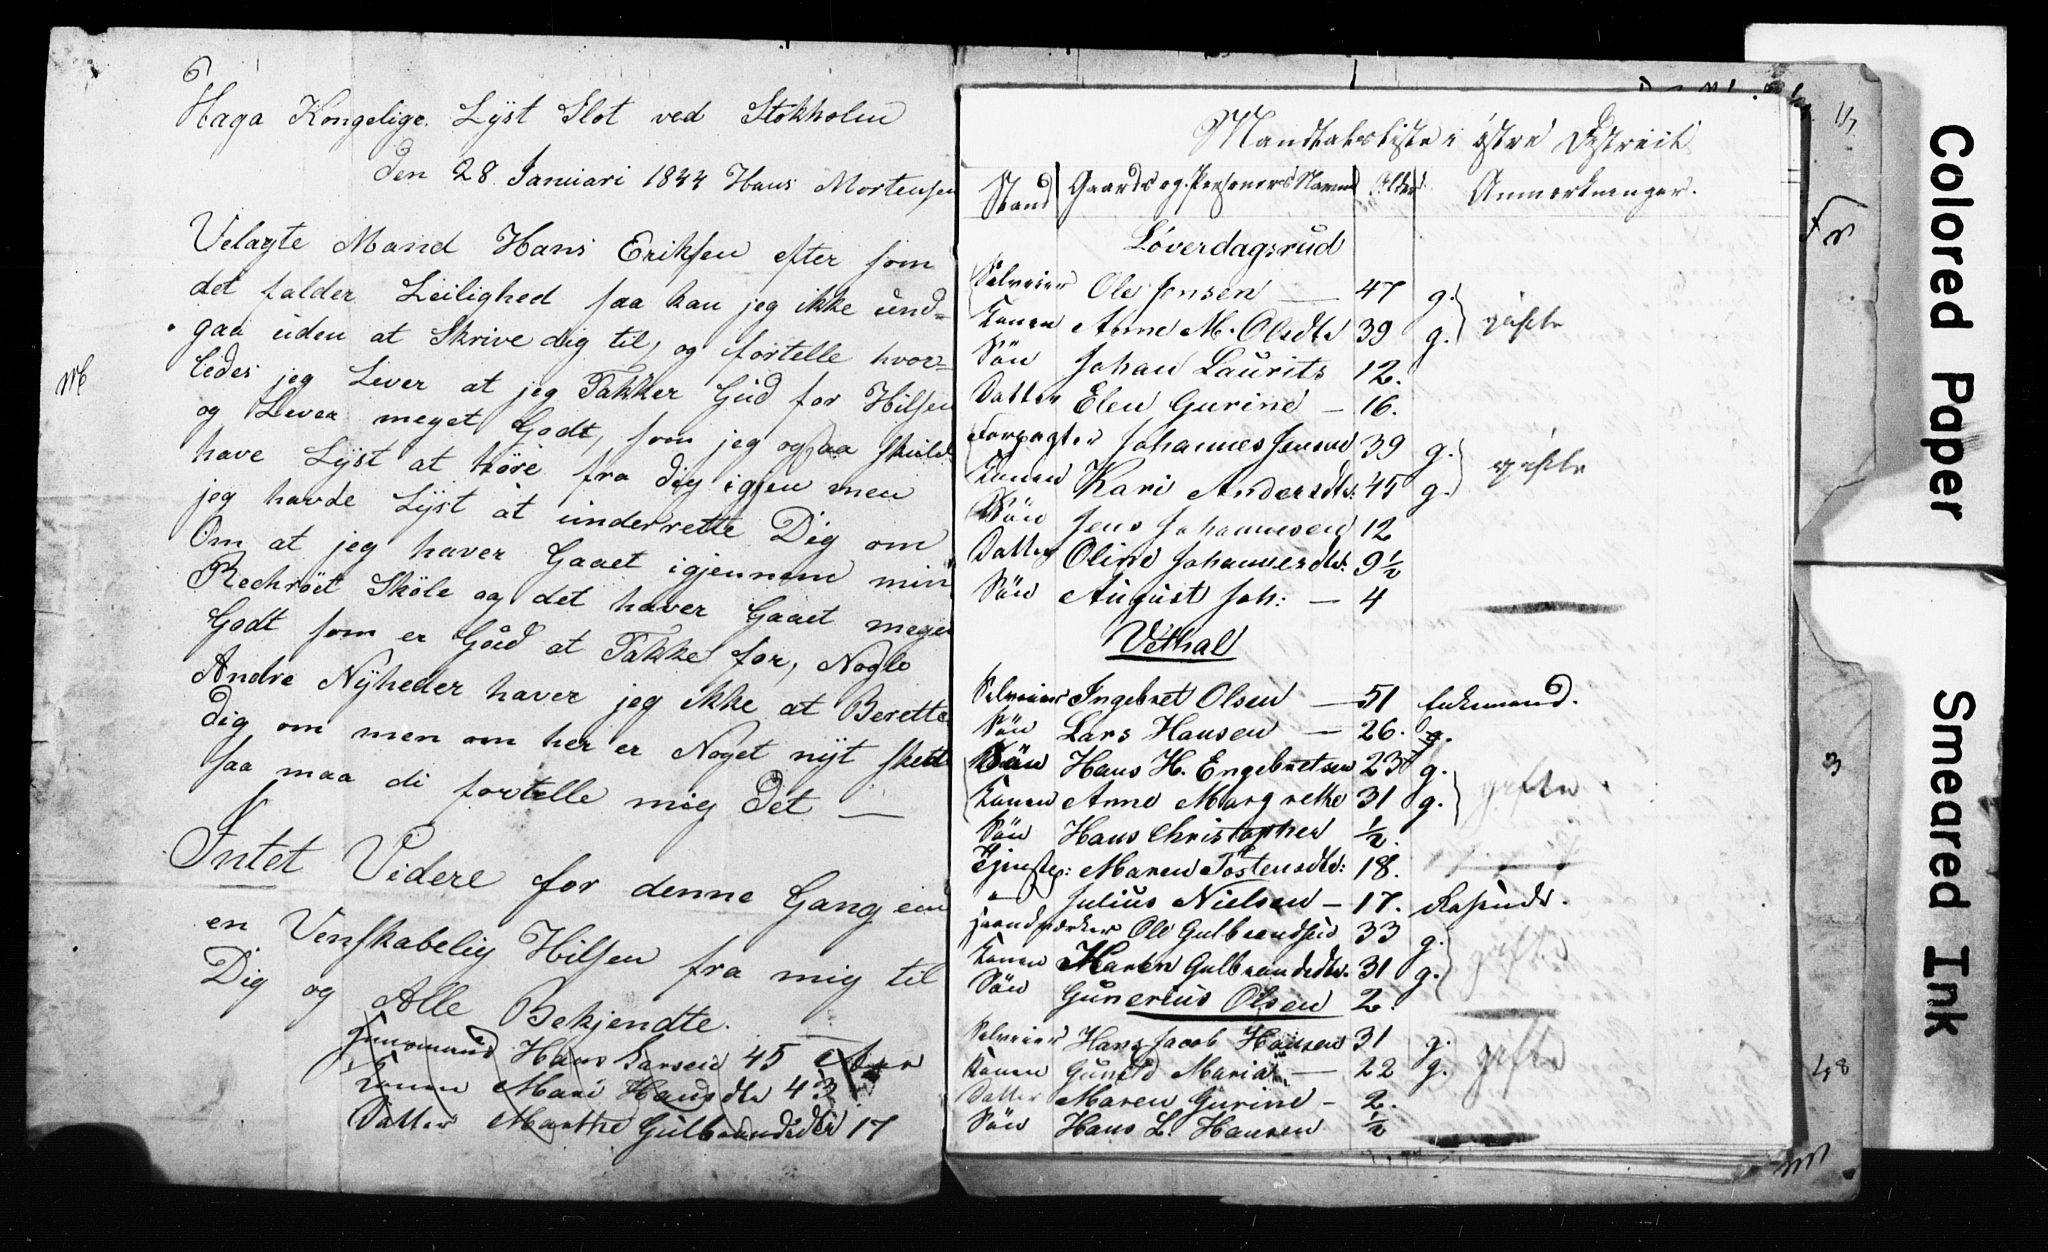 Haga Kongelige Lÿst Slot ved Stokholm
den 28 Januari 1844 Hans Mortensen
Velagte Mand Hans Eriksen efter som
det falder Leilighed saa kan jeg ikke und-
gaa uden at Skrive dig til, og fortelle hvor-
ledes jeg Lever at jeg Takker Gud for Hilsen
og Lever meget Godt, som jeg ogsaa skulde
have Lÿst at høre fra dig igjen men
jeg havde Lÿst at underrette Dig om
Om at jeg haver Gaaet igjennem min
Rechrŭt Skole og det haver Gaaet meget
Godt som er Gŭd at Takke for, Nogle
Andre Nÿheder haver jeg ikke at Berette
Dig om men om her er Noget nÿt skett
saa maa di fortelle mig Det —
Intet Videre for denne Gang end
en Venskabelig Hilsen fra mig til
Dig og Alle Bekjendte.
Hans Larsen 45
Konen Mari Hansdtr 43
Datter Marthe Gŭlbrandsdtr 17
Mandtalsliste i østre Destreict
Stand Gaards og Personers Navne Alder Anmerkninger.
Løverdagsrŭd
Selveier Ole Jensen — 47 g. gifte
Konen Anne M. Olsdtr 39 g.
Sön Johan Laurits 12.
Datter Elen Gurine — 16.
Forpagter Johannes Jensen 39 g. gifte
Konen Kari Andersdtr. 45 g.
Sön Jens Johannesen 12
Datter Oline Johannesdtr. 9½
Sön Aŭgŭst Joh: — 4
Vethal
Selveier Ingebret Olsen — 51 Enkemand.
Sön Lars Hansen — 26. g.
Sön Hans H. Engebretsen 23 g. gifte
Konen Anne Margrethe 31 g.
Sön Hans Christopher ½.
Tjenste: Maren Tostensdtr: 18.
" Julius Nielsen — 17.
Ole Gulbrandsen 33 g. gifte
Konen Maren Gulbrandsdtr. 31 g.
Sön Gŭnerius Olsen 2.
Selveier Hans Jacob Hansen 31 g. gifte
Konen Maria — 22 g.
Datter Maren Gurine — 2.
Sön Hans L. Hansen ½
Colored Paper
Smeared Ink
3
48